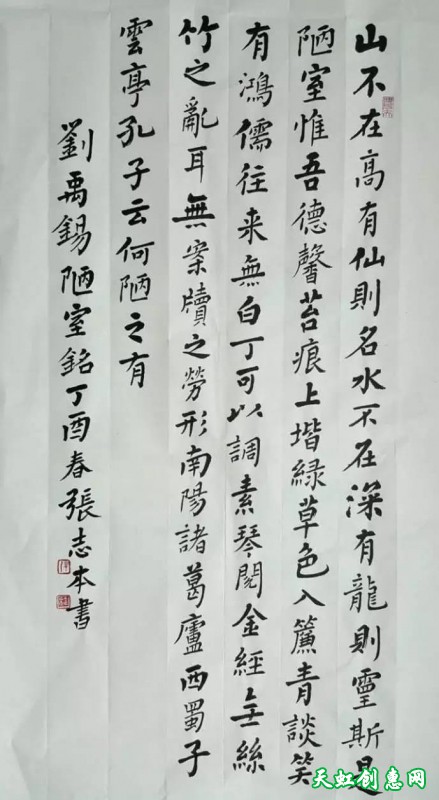 山不在高有仙則名水不在深有龍則靈斯是
陋室惟吾德馨苔痕上堦綠草色入簾青談笑
有鴻儒往来無白丁可以調素琴閱金經無絲
竹之亂耳無案牘之勞形南陽諸葛廬西蜀子
雲亭孔子云何陋之有
劉禹錫陋室銘丁酉春張志本書
天虹创惠网